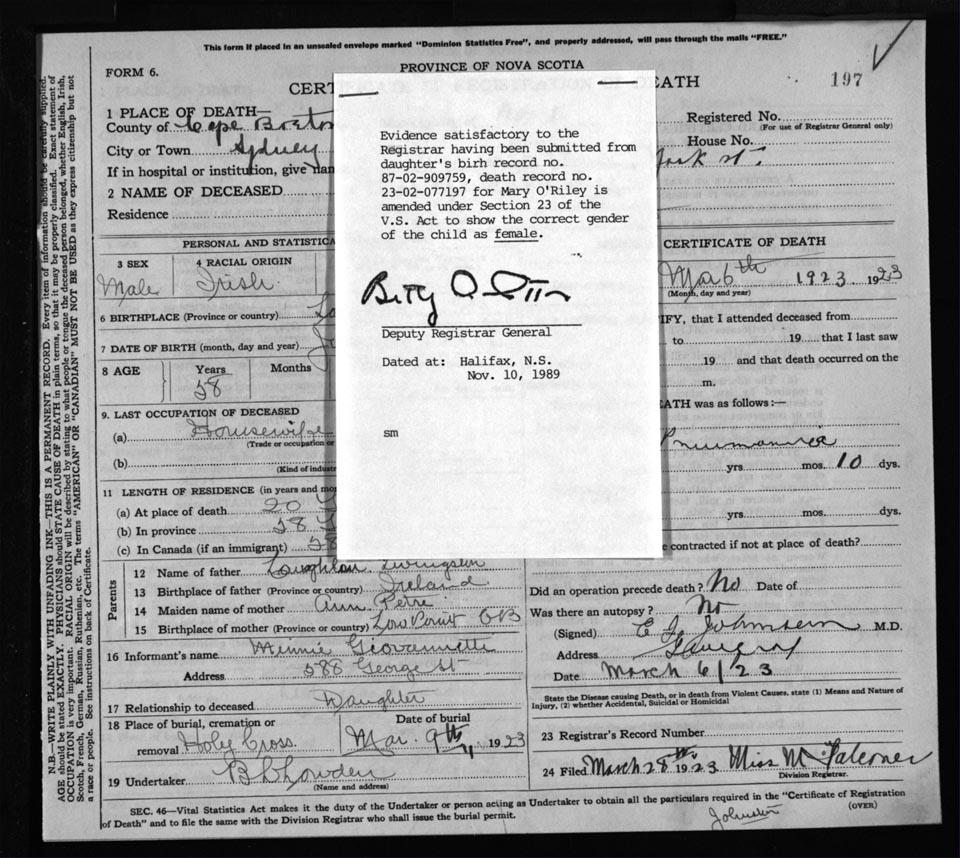 This form if placed in an unsealed envelope marked "Dominion Statistics Free", and properly addressed, will pass through the mails "FREE."
FORM 6.
PROVINCE OF NOVA SCOTIA
197
CERT DEATH
1 PLACE OF DEATH—
County of Cape Breton
City or Town Sydney
If in hospital or institution, give nam
2 NAME OF DECEASED
Residence
Registered No.
(For use of Registrar General only)
House No.
York St.
Evidence satisfactory to the
Registrar having been submitted from
daughter's birh record no.
87-02-909759, death record no.
23-02-077197 for Mary O'Riley is
amended under Section 23 of the
V.S. Act to show the correct gender
of the child as female.
Deputy Registrar General
Dated at: Halifax, N.S.
Nov. 10, 1989
sm
PERSONAL AND STATISTICA
3 SEX
Male
4 RACIAL ORIGIN
Irish.
6 BIRTHPLACE (Province or country)
7 DATE OF BIRTH (month, day and year)
8 AGE
Years
58
Months
9. LAST OCCUPATION OF DECEASED
(a) Housewife
(Trade or occupation or
(b)
(Kind of indust
11 LENGTH OF RESIDENCE (in years and mo
(a) At place of death 20
(b) In province 58
(c) In Canada (if an immigrant) 58
Parents
12 Name of father Loughlan Livingston
13 Birthplace of father (Province or country) Ireland
14 Maiden name of mother Ann Petre
15 Birthplace of mother (Province or country) Low Point CB
16 Informant's name Minnie
Address 588 George St
17 Relationship to deceased Daughter
18 Place of burial, cremation or
removal Holy Cross.
Date of burial
Mar. 9th 1923
19 Undertaker
(Name and address)
CERTIFICATE OF DEATH
Mar 6th 1923 1923
(Month, day and year)
IFY, that I attended deceased from
to 19 that I last saw
19 and that death occurred on the
m.
EATH was as follows:—
Pneumonia
yrs. mos. 10 dys.
yrs. mos. dys.
e contracted if not at place of death?
Did an operation precede death? No Date of
Was there an autopsy? No
(Signed) Johnstein M.D.
Address
Date March 6/23
State the Disease causing Death, or in death from Violent Causes, state (1) Means and Nature of
Injury, (2) whether Accidental, Suicidal or Homicidal
23 Registrar's Record Number
24 Filed March 28th 1923 Miss M. Falconer
Division Registrar.
SEC. 46—Vital Statistics Act makes it the duty of the Undertaker or person acting as Undertaker to obtain all the particulars required in the "Certificate of Registration
of Death" and to file the same with the Division Registrar who shall issue the burial permit.
(OVER)
N.B.—WRITE PLAINLY WITH UNFADING INK—THIS IS A PERMANENT RECORD. Every item of information should be carefully supplied.
AGE should be stated EXACTLY. PHYSICIANS should STATE CAUSE OF DEATH in plain terms, so that it may be properly classified. Exact statement of
OCCUPATION is very important. RACIAL ORIGIN will be described by stating to what people or tongue the deceased person belonged, whether English, Irish,
Scotch, French, German, Russian, Ruthenian, etc. The terms "AMERICAN" OR "CANADIAN" MUST NOT BE USED as they express citizenship but not
a race or people. See instructions on back of Certificate.